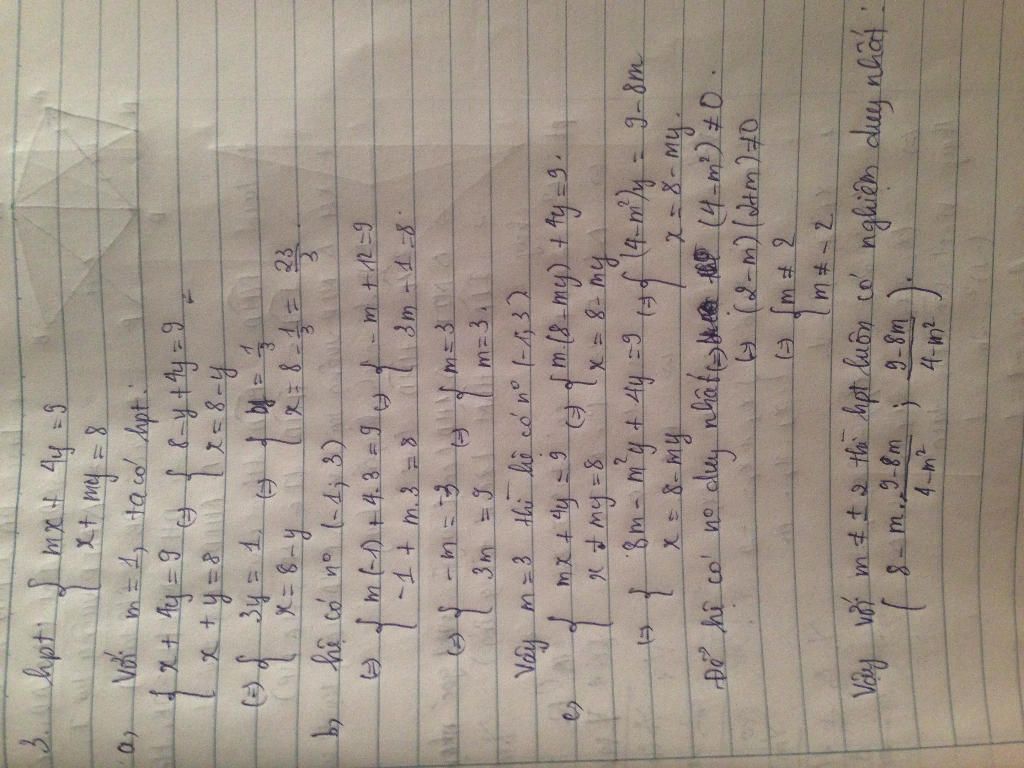 3. hpt: { mx + 4y = 9
x + my = 8
a, Với m = 1, ta có hpt:
{ x + 4y = 9 (=) { 8 - y + 4y = 9
x + y = 8 { x = 8 - y
(=) { 3y = 1 (=) { y = 1/3
x = 8 - y { x = 8 - 1/3 = 23/3
b, hệ có n° (-1; 3)
(=) { m(-1) + 4.3 = 9 (=) { - m + 12 = 9
-1 + m.3 = 8 { 3m - 1 = 8.
(=) { -m = -3 (=) { m = 3
3m = 9 { m = 3.
Vậy m = 3 thì hệ có n° (-1; 3)
c, { mx + 4y = 9 (=) { m(8 - my) + 4y = 9.
x + my = 8 { x = 8 - my
(=) { 8m - m²y + 4y = 9 (=) { (4 - m²)y = 9 - 8m
x = 8 - my { x = 8 - my.
Để hệ có n° duy nhất (=) (4 - m²) ≠ 0.
(=) (2 - m)(2 + m) ≠ 0
(=) { m ≠ 2
{ m ≠ - 2
Vậy với m ≠ ± 2 thì hpt luôn có nghiệm duy nhất:
( 8 - m. 9 - 8m / 4 - m² ; 9 - 8m / 4 - m² ).